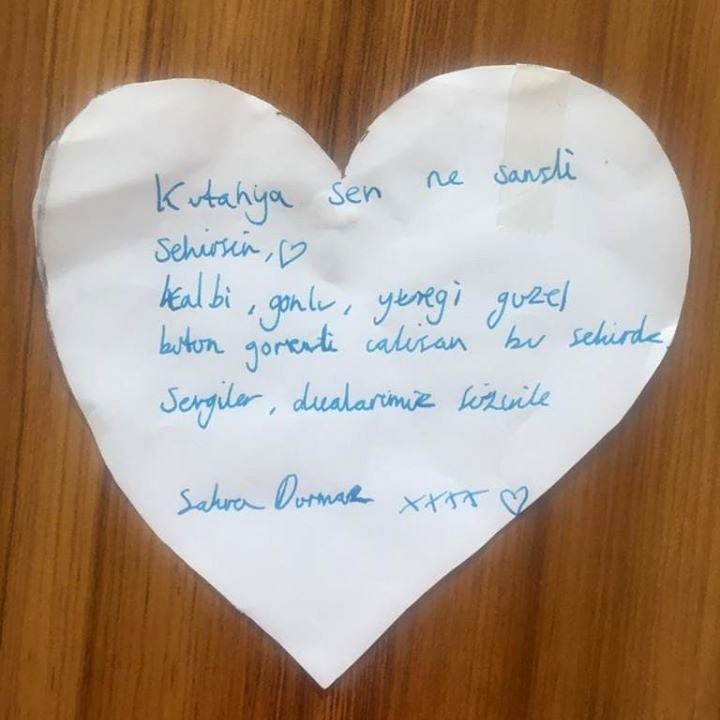 Kutahya sen ne sansli
sehirsin, ♡
Kalbi, gonlu, yuregi guzel
butun gorevli calisan bu sehirde
Sevgiler, dualarimiz sizinle
Sahra Durmaz xxxx ♡